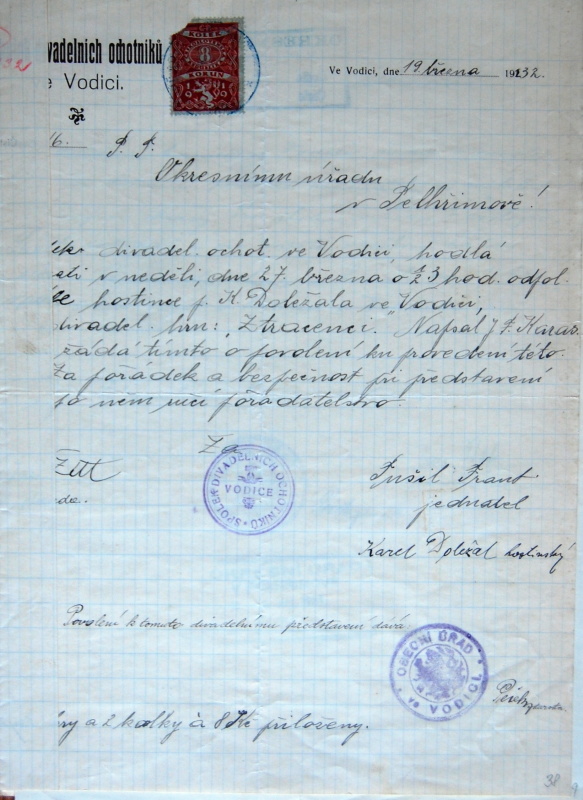 vadelních ochotníků
e Vodici.
KOLEK
8
KORUN
1919
Ve Vodici, dne 19 března 1932.
P. T.
Okresnímu úřadu
v Pelhřimově!
divadel. ochot. ve Vodici, hodlá
v neděli, dne 27. března o ½3 hod. odpol.
hostince p. K. Doležala ve Vodici,
divadel. hru: „Ztracenci." Napsal J. F. Karas.
žádá tímto o povolení ku provedení této.
Za pořádek a bezpečnost při představení
po něm ručí pořadatelstvo.
Za
SPOLEK DIVADELNÍCH OCHOTNÍKŮ
VODICE
jednatel
Karel Doležal hostinský
Povolení k tomuto divadelnímu představení dává:
OBECNÍ ÚŘAD
ve VODICI
a 2 kolky à 8 Kč přiloženy.
38